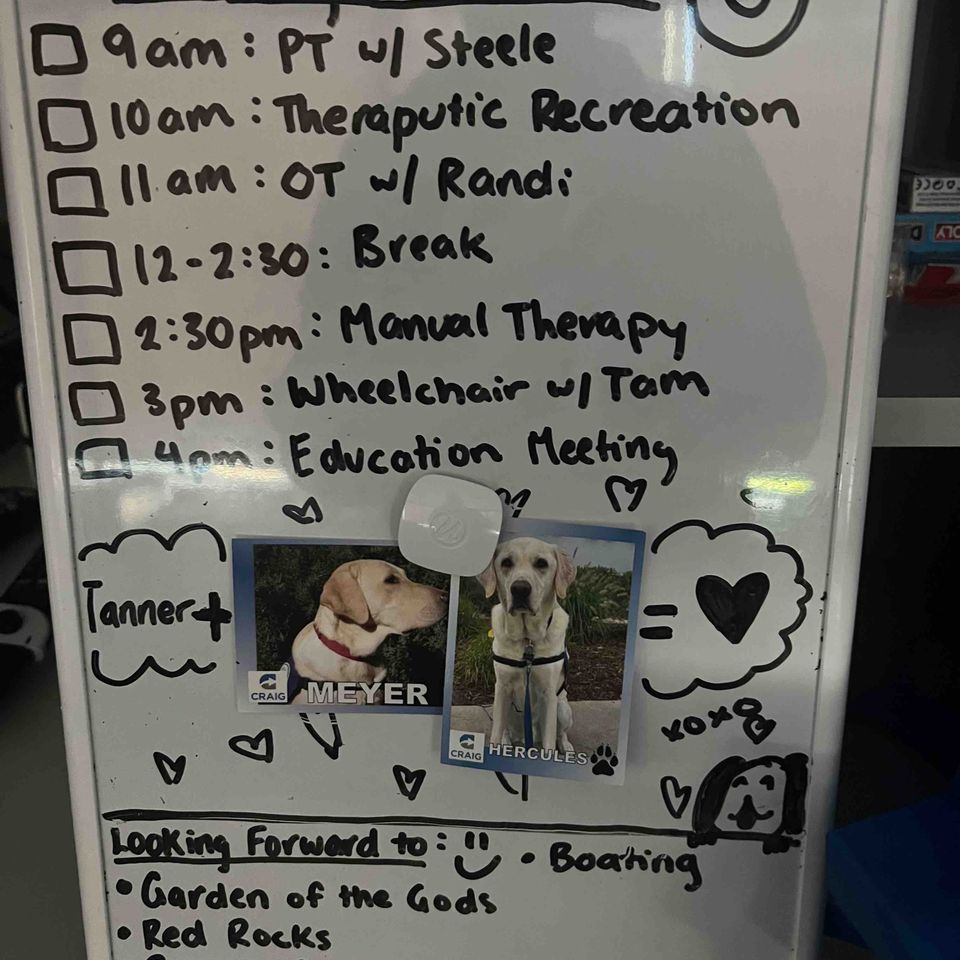 9am: PT w/ Steele
10am: Theraputic Recreation
11am: OT w/ Randi
12-2:30: Break
2:30pm: Manual Therapy
3pm: Wheelchair w/ Tam
4pm: Education Meeting
Tanner +
CRAIG MEYER
CRAIG HERCULES
=
xoxo
Looking Forward to: • Boating
• Garden of the Gods
• Red Rocks